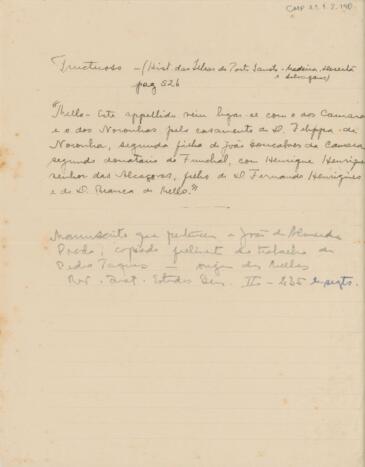 CMP 21.1.2.190
Fructuoso - (Hist. das Ilhas de Porto Santo - Madeira, Deserta
e Selvagens)
pag 526
"Mello - Este appellido veio ligar-se com o dos Camara
e o dos Noronhas pelo casamento de D. Filippa de
Noronha, segunda filha de João Gonsalves da Camara
segundo donatario do Funchal, com Henrique Henriques
senhor das Alcaçovas, filho de D. Fernando Henriques
e de D. Branca de Mello."
Manuscripto que pertence a João de Almeida
Prado, copiado do trabalho de
Pedro Taques - origem dos Mellos
Rev. Inst. Estudos Gen. II - 235 e segts.